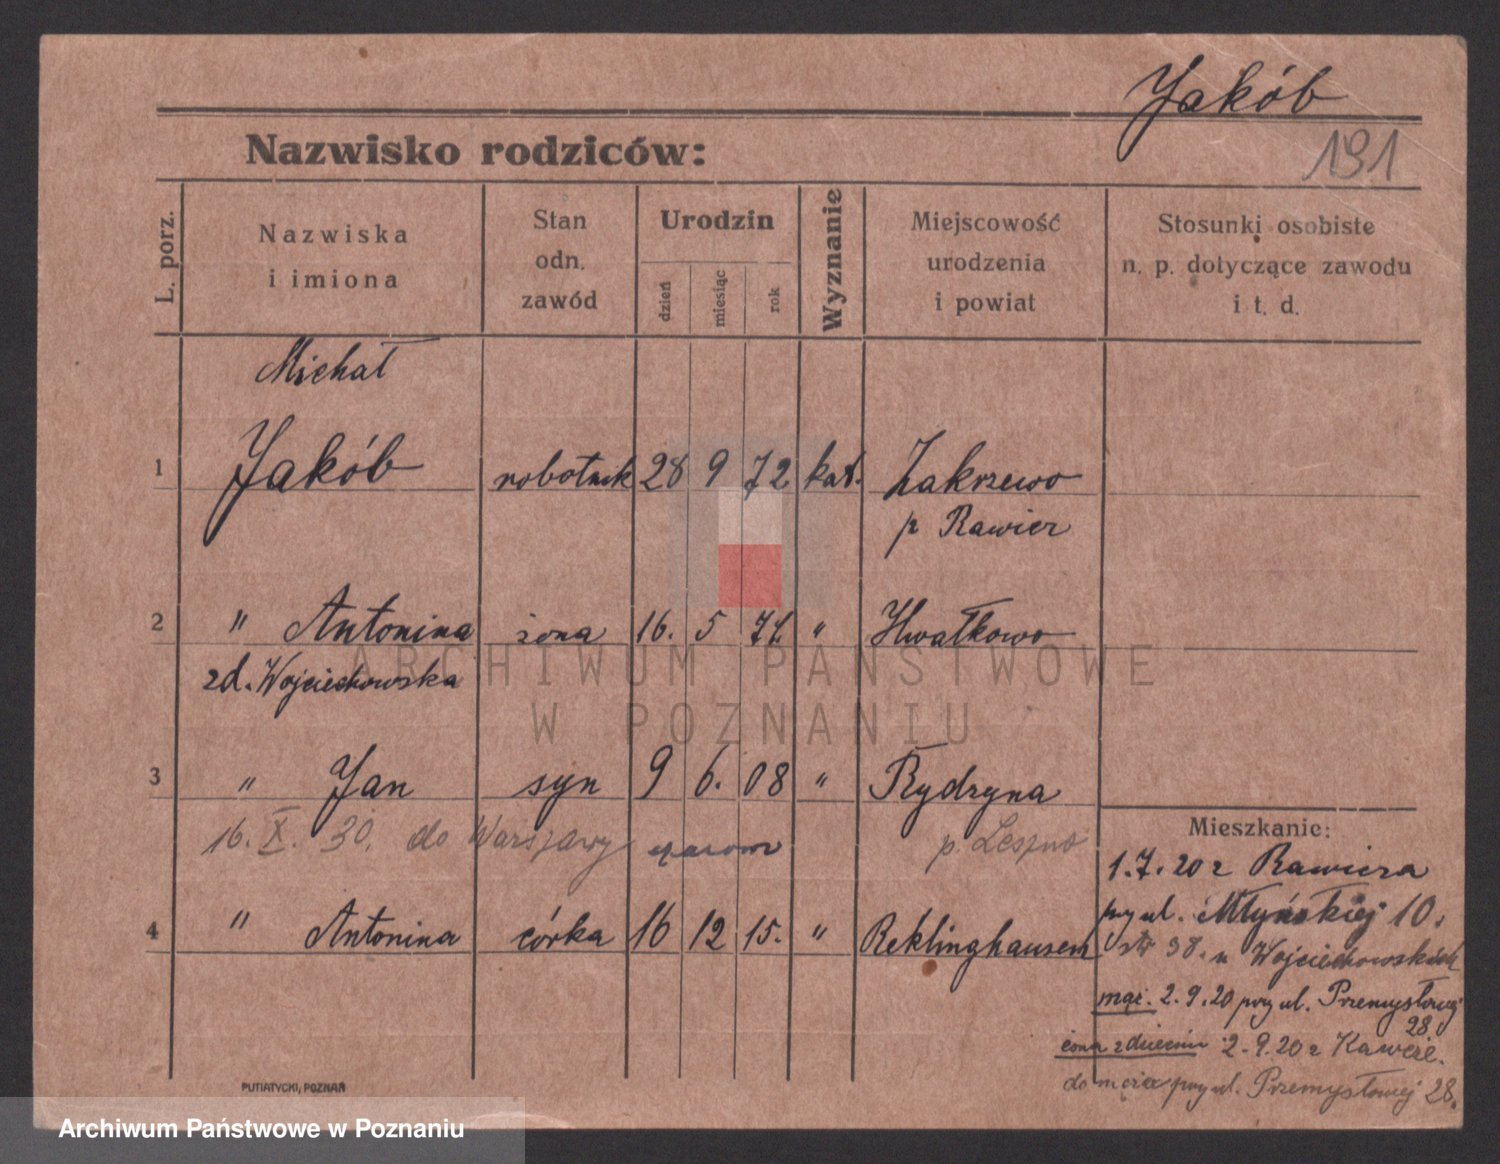 Jakób
191
Nazwisko rodziców:
L. porz.
Nazwiska
i imiona
Stan
odn.
zawód
Urodzin
dzień
miesiąc
rok
Wyznanie
Miejscowość
urodzenia
i powiat
Stosunki osobiste
n. p. dotyczące zawodu
i t. d.
Michał
1 Jakób robotnik 28 9 72 kat. Zakrzewo
p Rawicz
2 " Antonina żona 16. 5 71 " Chwałkowo
zd. Wojciechowska
3 " Jan syn 9 6. 08 " Rydzyna
16. X. 30. do Warszawy
p. Leszno
4 " Antonina córka 16 12 15. " Reklinghausen
Mieszkanie:
1.7.20 z Rawicza
przy ul. Młyńskiej 10.
38. u Wojciechowskich
mąż. 2.9.20 przy ul. Przemysłowej
28.
żona z dziećmi 2.9.20 z
do męża przy ul. Przemysłowej 28.
PUTIATYCKI, POZNAŃ
ARCHIWUM PAŃSTWOWE
W POZNANIU
Archiwum Państwowe w Poznaniu